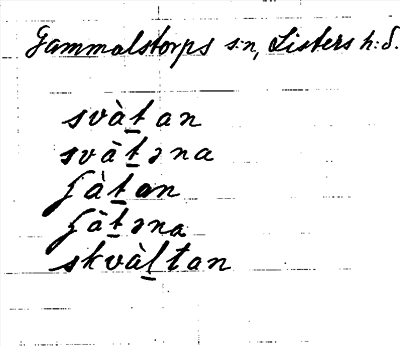 Gammalstorps s:n, Listers h:d.
svàṯan
svàṯɔna
ʃàṯan
ʃàṯɔna
skvàḻtan